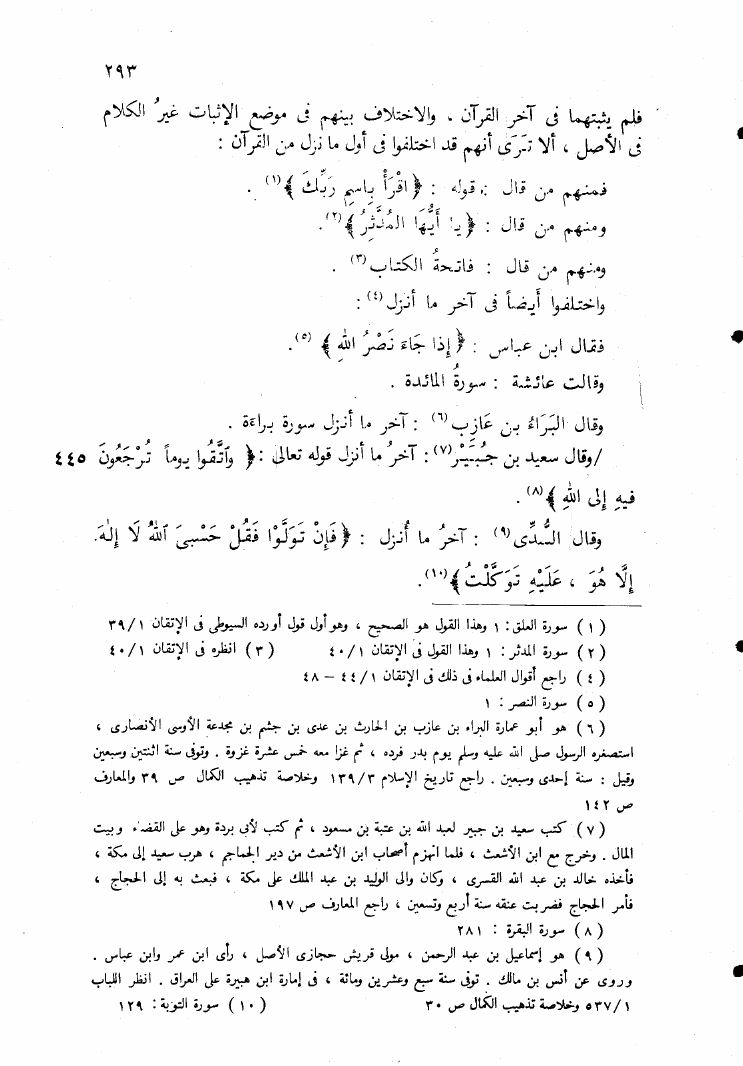 ٢٩٣
فلم يثبتهما فى آخر القرآن ، والاختلاف بينهم فى موضع الإثبات غيرُ الكلام
فى الأصل ، ألا تَرَى أنهم قد اختلفوا فى أول ما نزل من القرآن :
فمنهم من قال : قوله : ﴿ اقْرَأْ بِاسمِ رَبِّكَ ﴾(١) .
ومنهم من قال : ﴿ يا أَيُّهَا المُدَّثِّرُ ﴾(٢).
ومنهم من قال : فاتحةُ الكتاب(٣) .
واختلفوا أيضاً فى آخر ما أنزل(٤) :
فقال ابن عباس : ﴿ إذا جَاءَ نَصْرُ اللهِ ﴾(٥).
وقالت عائشة : سورةُ المائدة .
وقال البَرَاءُ بن عَازِب(٦) : آخر ما أنزل سورة براءة .
/وقال سعيد بن جُبَيْر(٧) : آخرُ ما أنزل قوله تعالى : ﴿ وَٱتَّقُوا يوماً تُرْجَعُونَ ٤٤٥
فيهِ إلى اللهِ ﴾(٨) .
وقال السُّدِّى(٩) : آخرُ ما أُنزل : ﴿ فَإِنْ تَوَلَّوْا فَقُلْ حَسْبِىَ ٱللهُ لَا إِلٰهَ
إِلَّا هُوَ ، عَلَيْهِ تَوَكَّلْتُ ﴾(١٠).
(١) سورة العلق: ١ وهذا القول هو الصحيح ، وهو أول قول أورده السيوطى فى الإتقان ٣٩/١
(٢) سورة المدثر: ١ وهذا القول فى الإتقان ٤٠/١ (٣) انظره فى الإتقان ٤٠/١
(٤) راجع أقوال العلماء فى ذلك فى الإتقان ٤٤/١ – ٤٨
(٥) سورة النصر : ١
(٦) هو أبو عمارة البراء بن عازب بن الحارث بن عدى بن جشم بن مجدعة الأوسى الأنصارى ،
استصغره الرسول صلى الله عليه وسلم يوم بدر فرده ، ثم غزا معه خمس عشرة غزوة . وتوفى سنة اثنتين وسبعين
وقيل : سنة إحدى وسبعين . راجع تاريخ الإسلام ١٣٩/٣ وخلاصة تذهيب الكمال ص ٣٩ والمعارف
ص ١٤٢
(٧) كتب سعيد بن جبير لعبد الله بن عتبة بن مسعود ، ثم كتب لأبى بردة وهو على القضاء وبيت
المال . وخرج مع ابن الأشعث ، فلما انهزم أصحاب ابن الأشعث من دير الجماجم ، هرب سعيد إلى مكة ،
فأخذه خالد بن عبد الله القسرى ، وكان والى الوليد بن عبد الملك على مكة ، فبعث به إلى الحجاج ،
فأمر الحجاج فضربت عنقه سنة أربع وتسعين ، راجع المعارف ص ١٩٧
(٨) سورة البقرة : ٢٨١
(٩) هو إسماعيل بن عبد الرحمن ، مولى قريش حجازى الأصل ، رأى ابن عمر وابن عباس .
وروى عن أنس بن مالك . توفى سنة سبع وعشرين ومائة ، فى إمارة ابن هبيرة على العراق . انظر اللباب
٥٣٧/١ وخلاصة تذهيب الكمال ص ٣٠ (١٠) سورة التوبة : ١٢٩